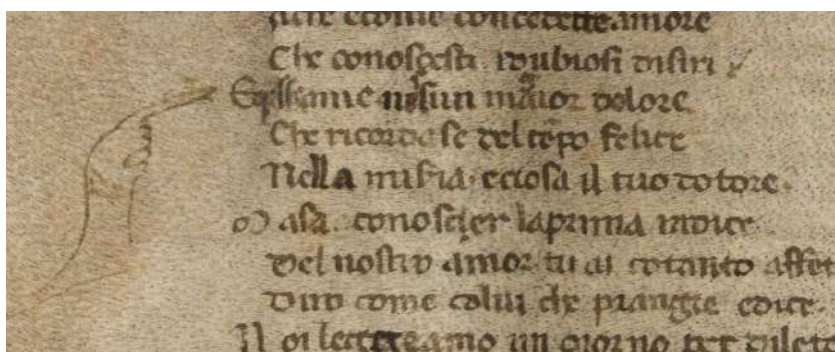 ache ecome concedette amore
Che conoscesti. idubiosi disiri
Equella ame nesun maior dolore
Che ricordase del tēpo felice
Nella miseria. eciosa il tuo dotore.
Masa. conoscier laprima radice
Del nostro amor tu ai cotanto affet
Diro come colui che piangie edice.
Noi legeveamo un giorno per dilet